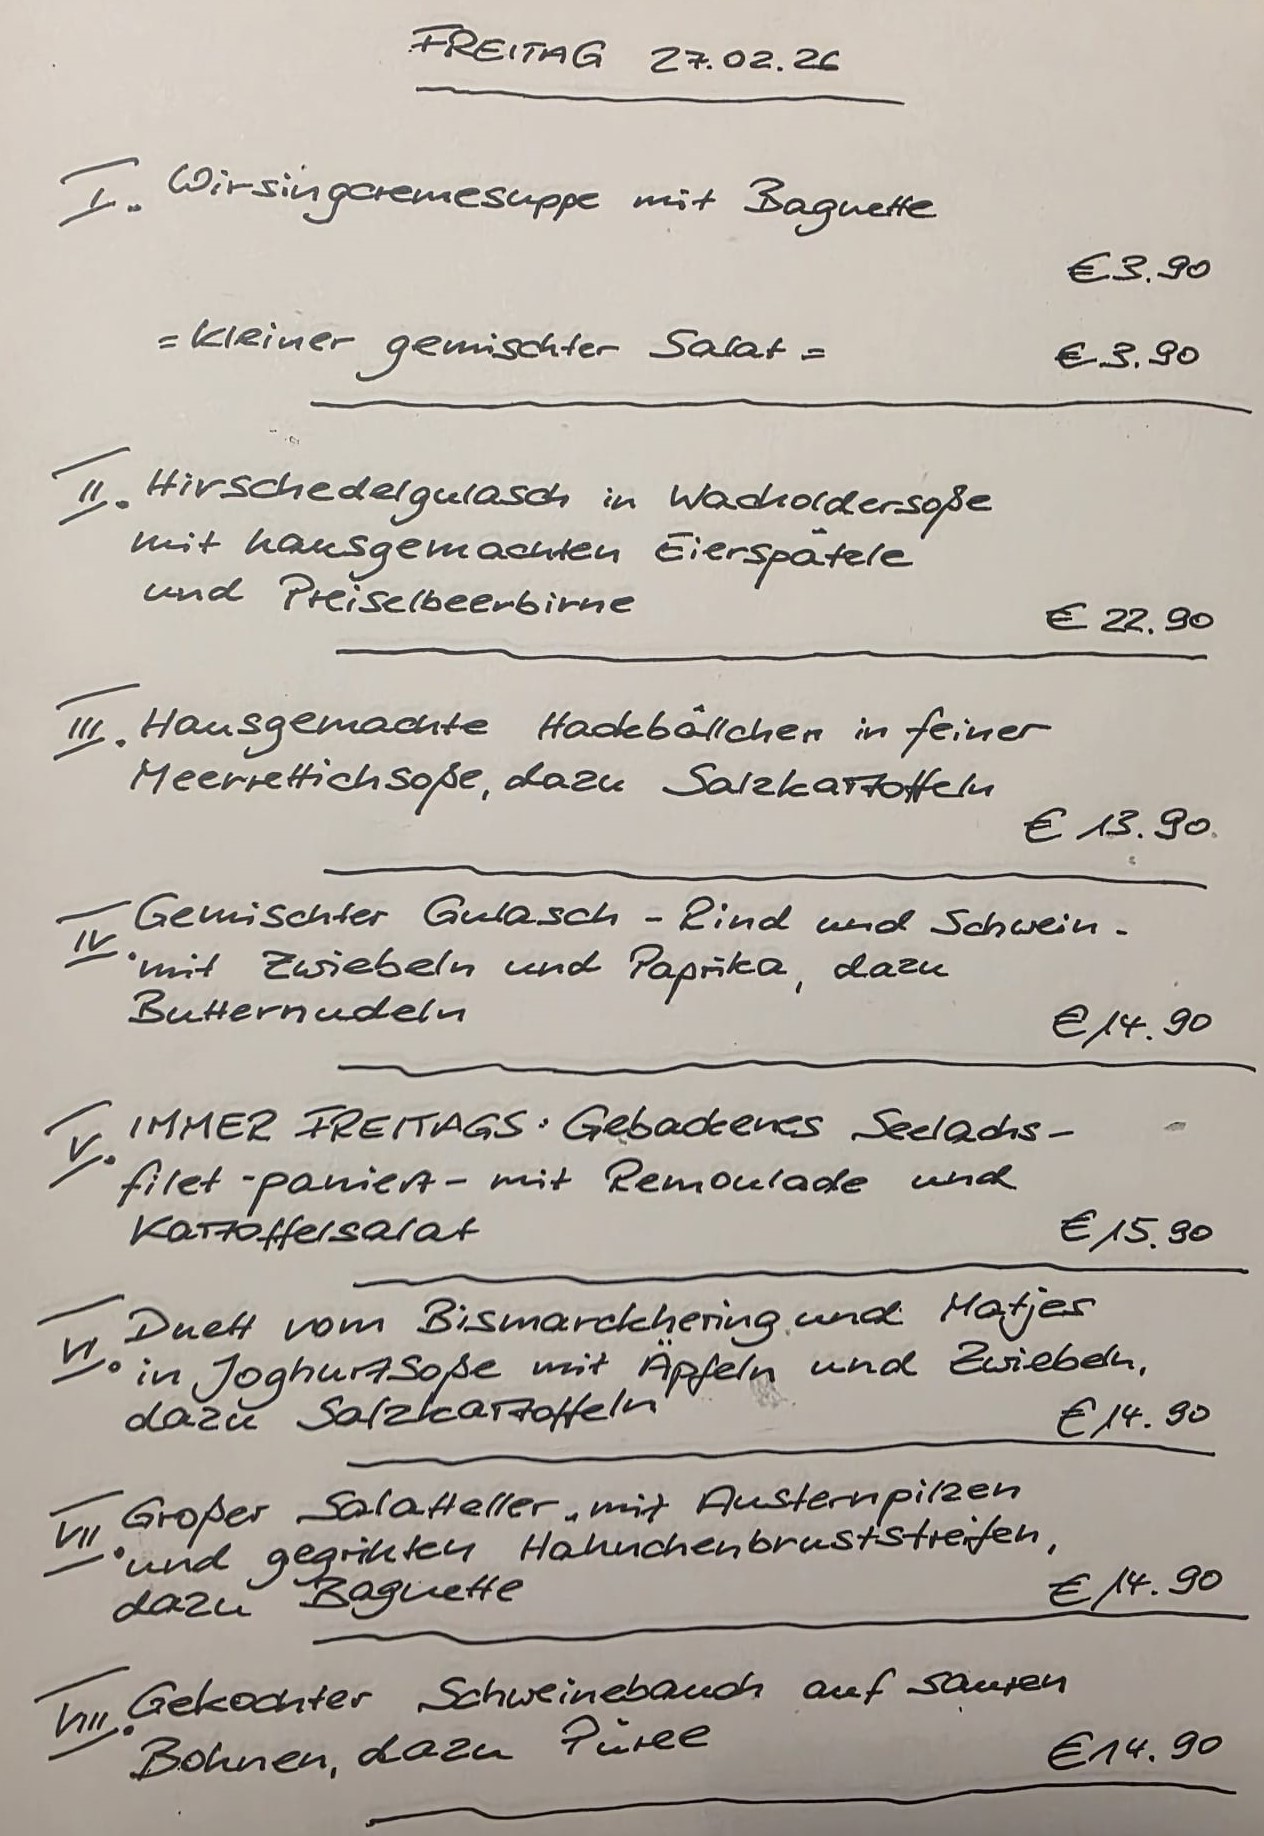 FREITAG 27.02.26
I. Wirsingcremesuppe mit Baguette
€ 3.90
= kleiner gemischter Salat = € 3.90
II. Hirschedelgulasch in Wacholdersoße
mit hausgemachten Eierspätele
und Preiselbeerbirne € 22.90
III. Hausgemachte Hackbällchen in feiner
Meerrettichsoße, dazu Salzkartoffeln
€ 13.90
IV. Gemischter Gulasch - Rind und Schwein -
mit Zwiebeln und Paprika, dazu
Butternudeln € 14.90
V. IMMER FREITAGS: Gebackenes Seelachs-
filet - paniert - mit Remoulade und
Kartoffelsalat € 15.90
VI. Duett vom Bismarckhering und Matjes
in Joghurtsoße mit Äpfeln und Zwiebeln,
dazu Salzkartoffeln € 14.90
VII. Großer Salatteller mit Austernpilzen
und gegrillten Hähnchenbruststreifen,
dazu Baguette € 14.90
VIII. Gekochter Schweinebauch auf sauren
Bohnen, dazu Püree € 14.90